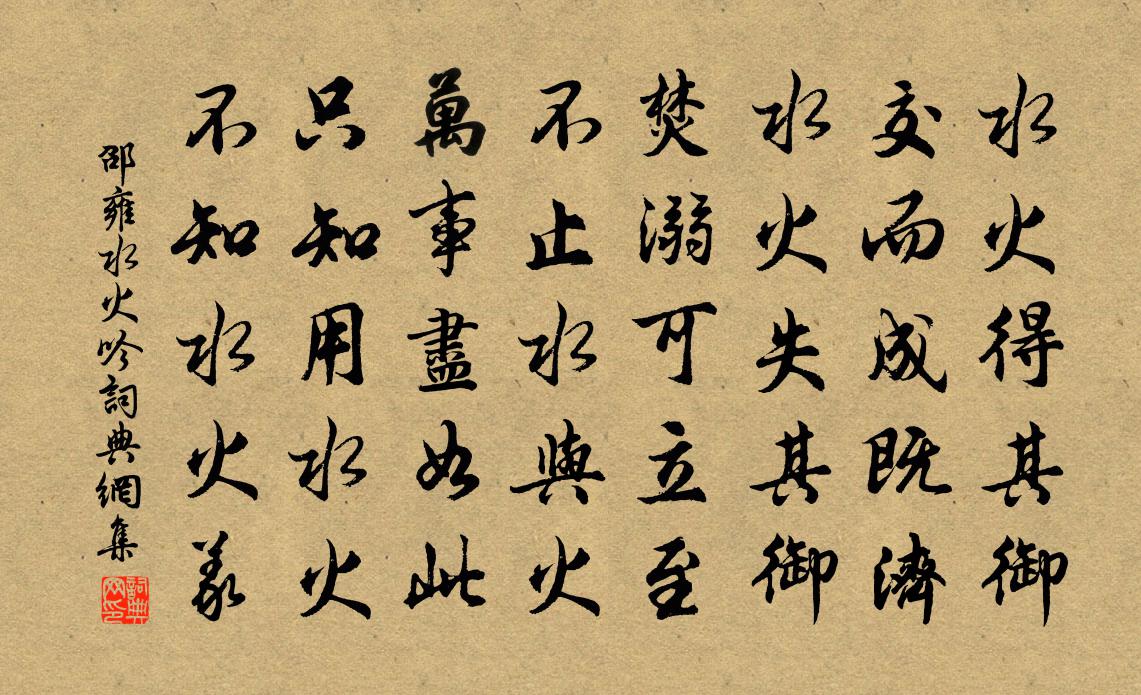 水火得其御
交而成既濟
水火失其御
焚溺可立至
不止水與火
萬事盡如此
只知用水火
不知水火義
邵雍水火吟詞典網集
詞典网印